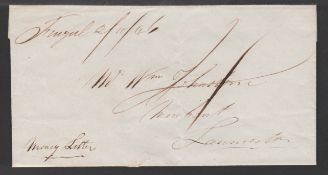 Fingal 2/10/46
1/
Mr Wm Johnstone
Merchant
Launceston
Money Letter